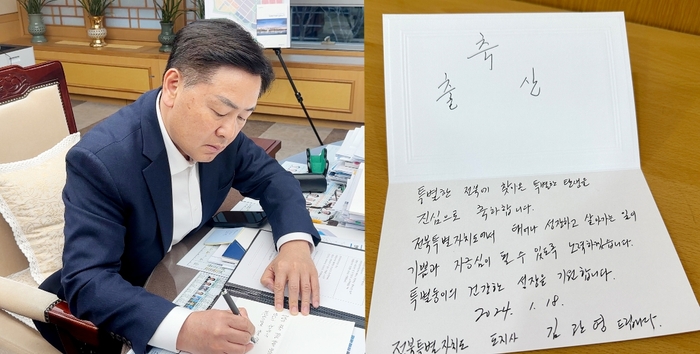 축
출 산
특별한 전북에 찾아온 특별한 탄생을
진심으로 축하합니다.
전북특별자치도에서 태어나 성장하고 살아가는 일이
기쁨과 자긍심이 될 수 있도록 노력하겠습니다.
특별둥이의 건강한 성장을 기원합니다.
2024. 1. 18.
전북특별자치도 도지사 김관영 드립니다.